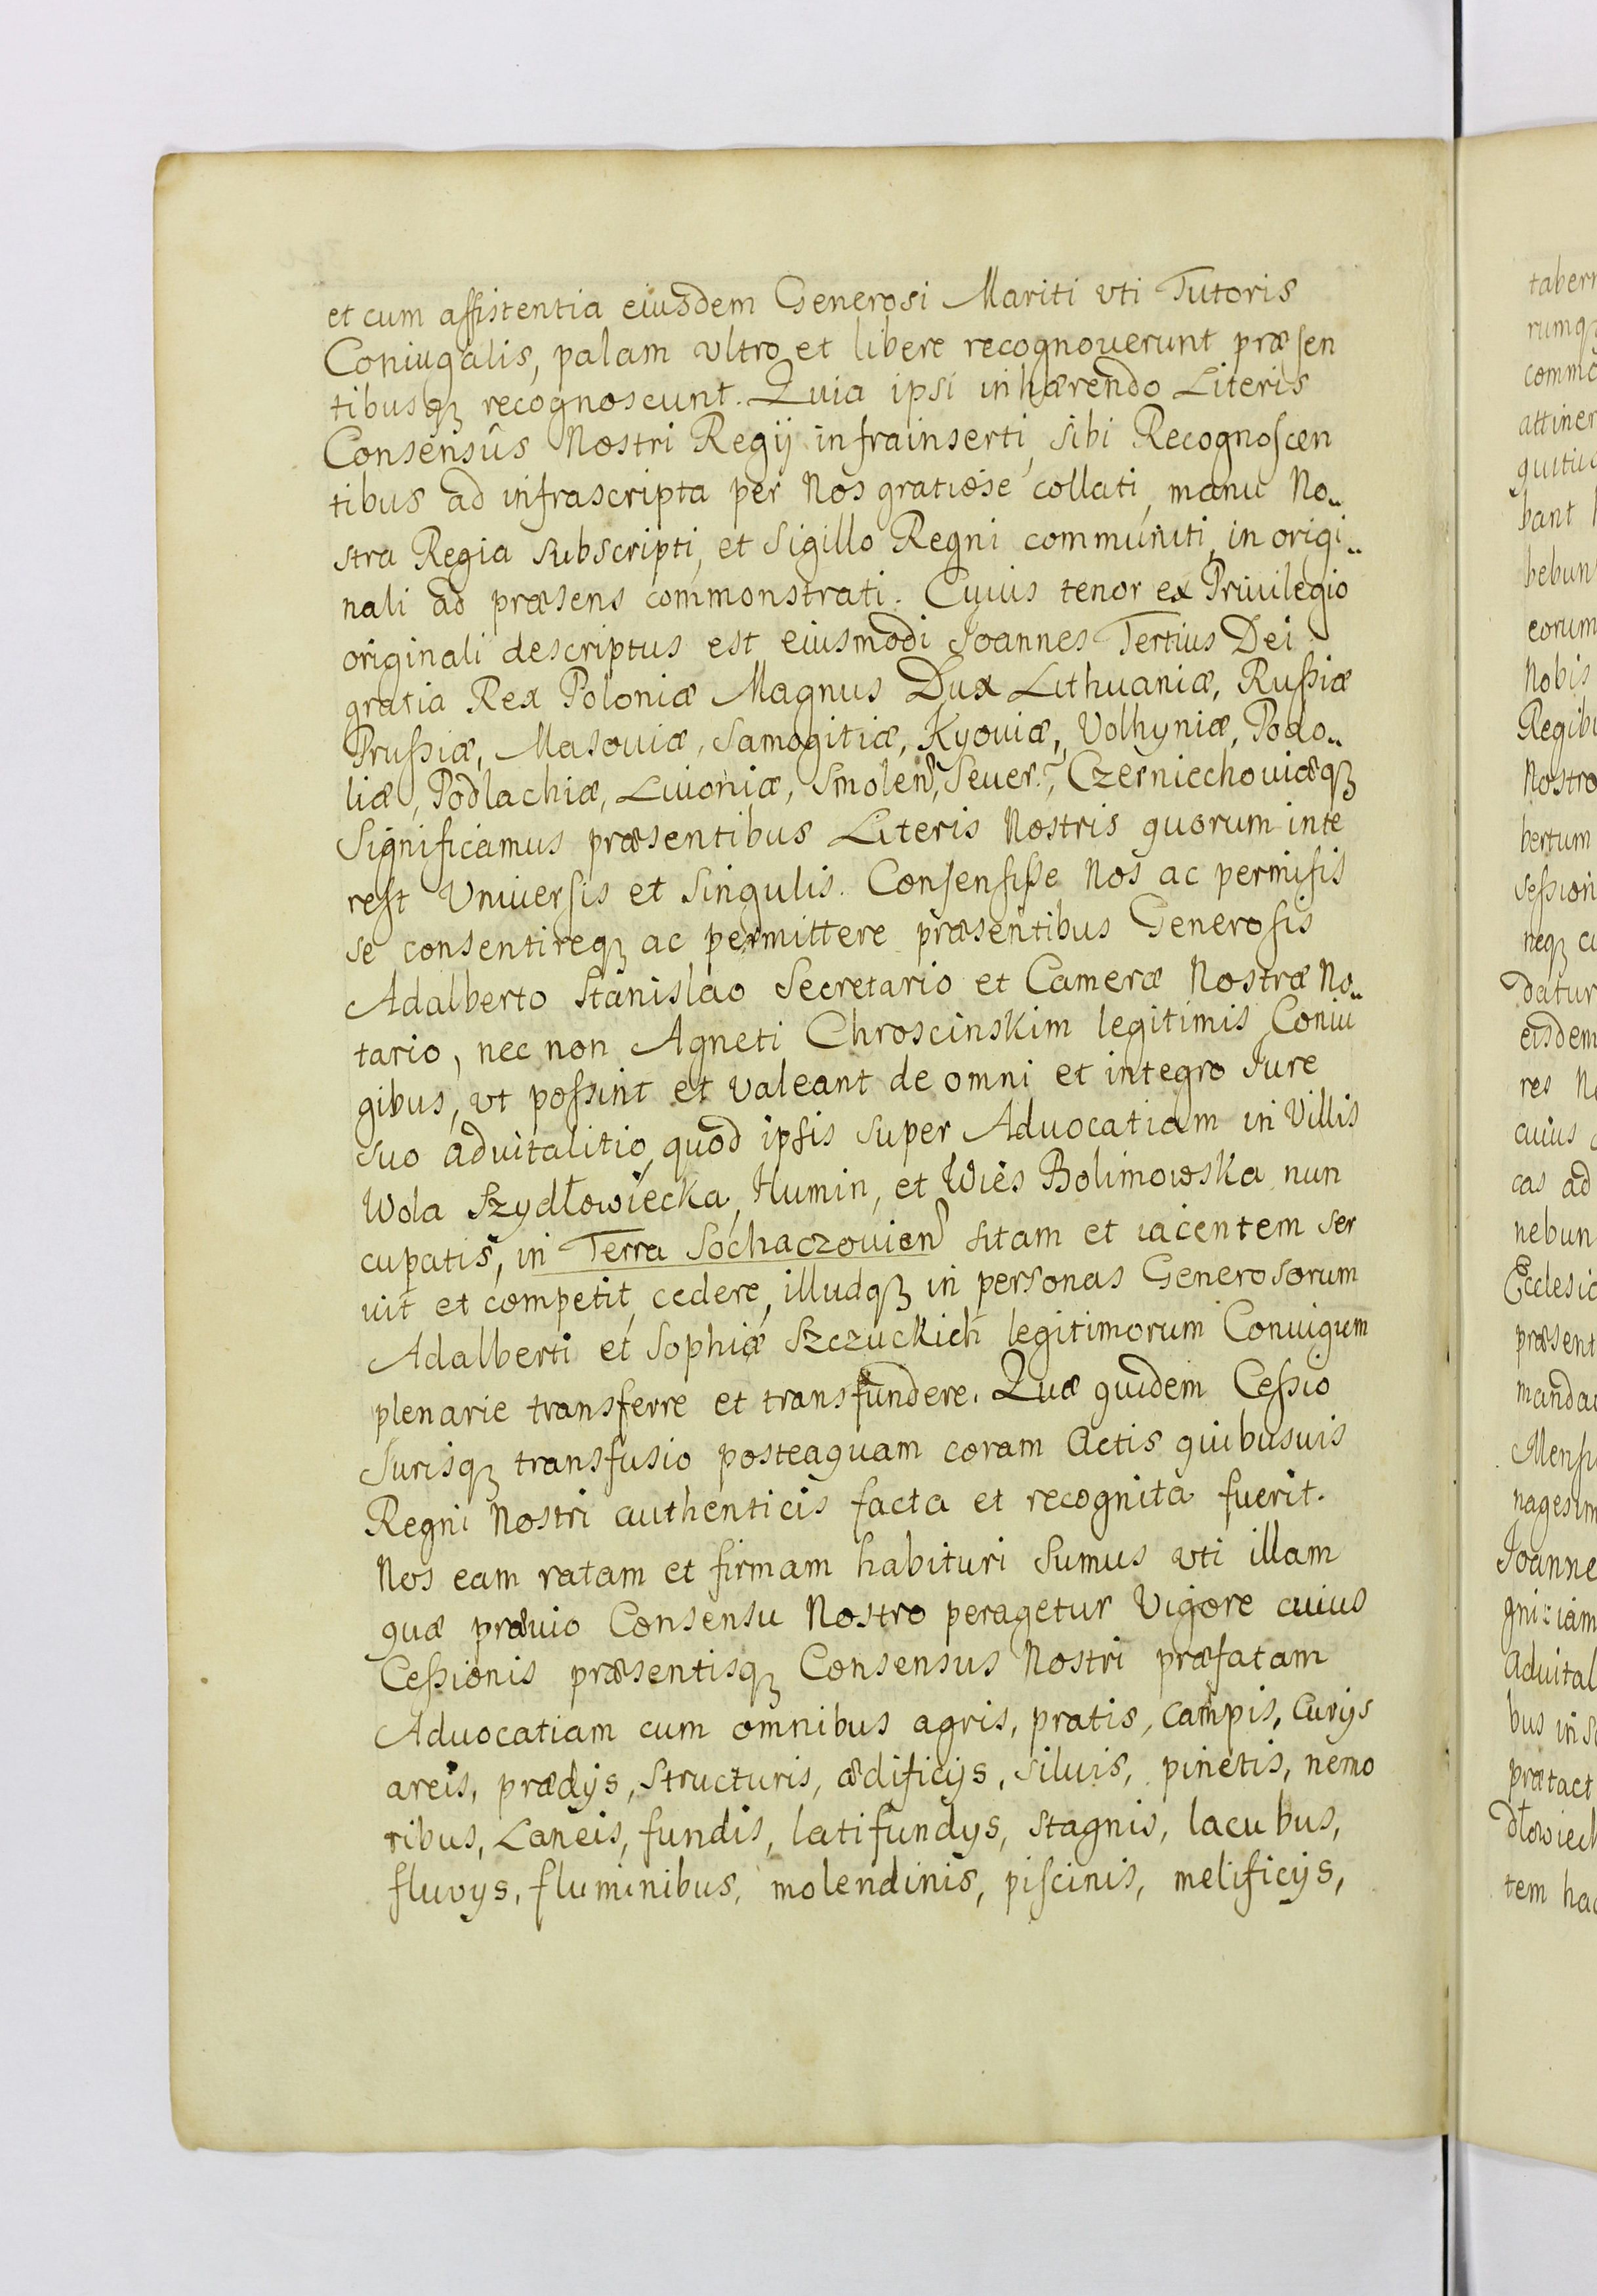 et cum assistentia eiusdem Generosi Mariti uti Tutoris
Coniugalis, palam ultro et libere recognouerunt præsen
tibusqꝫ recognoscunt. Quia ipsi inhærendo Literis
Consensûs Nostri Regij infrainserti, sibi Recognoscen
tibus ad infrascripta per Nos gratiose collati, manu No„
stra Regia subscripti, et Sigillo Regni communiti, in origi„
nali ad præsens commonstrati. Cuius tenor ex Priuilegio
originali descriptus est eiusmodi Joannes Tertius Dei
gratia Rex Poloniæ Magnus Dux Lithuaniæ, Russiæ
Prussiæ, Masouiæ, Samogitiæ, Kyouiæ, Volhyniæ, Podo„
liæ, Podlachiæ, Liuoniæ, Smolen, Seuer:, Czerniechouiæqꝫ
Significamus præsentibus Literis Nostris quorum inte
rest Vniuersis et Singulis. Consensisse Nos ac permisis
se consentireqꝫ ac permittere præsentibus Generosis
Adalberto Stanislao Secretario et Cameræ Nostræ No„
tario, nec non Agneti Chroscinskim legitimis Coniu
gibus, vt possint et valeant de omni et integro Jure
suo aduitalitio, quod ipsis super Aduocatiam in Villis
Wola Szydłowiecka, Humin, et Wies Bolimowska nun
cupatis, in Terra Sochaczouien sitam et iacentem ser
uit et competit, cedere, illudqꝫ in personas Generosorum
Adalberti et Sophiæ Szczuckich legitimorum Coniugum
plenarie transferre et transfundere. Quæ quidem Cessio
Jurisqꝫ transfusio posteaquam coram Actis quibusuis
Regni Nostri authenticis facta et recognita fuerit.
Nos eam ratam et firmam habituri sumus vti illam
quæ præuio Consensu Nostro peragetur Vigore cuius
Cessionis præsentisqꝫ Consensus Nostri præfatam
Aduocatiam cum omnibus agris, pratis, campis, curijs
areis, prædijs, structuris, ædificijs, siluis, pinetis, nemo
ribus, Laneis, fundis, latifundijs, stagnis, lacubus,
fluvys, fluminibus, molendinis, piscinis, melificijs,